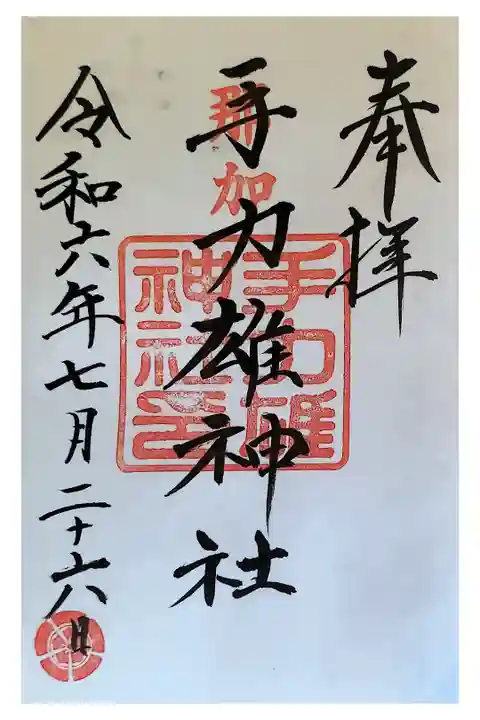 奉拝
那加
手力雄神社
手力雄
神社
令和六年七月二十六日